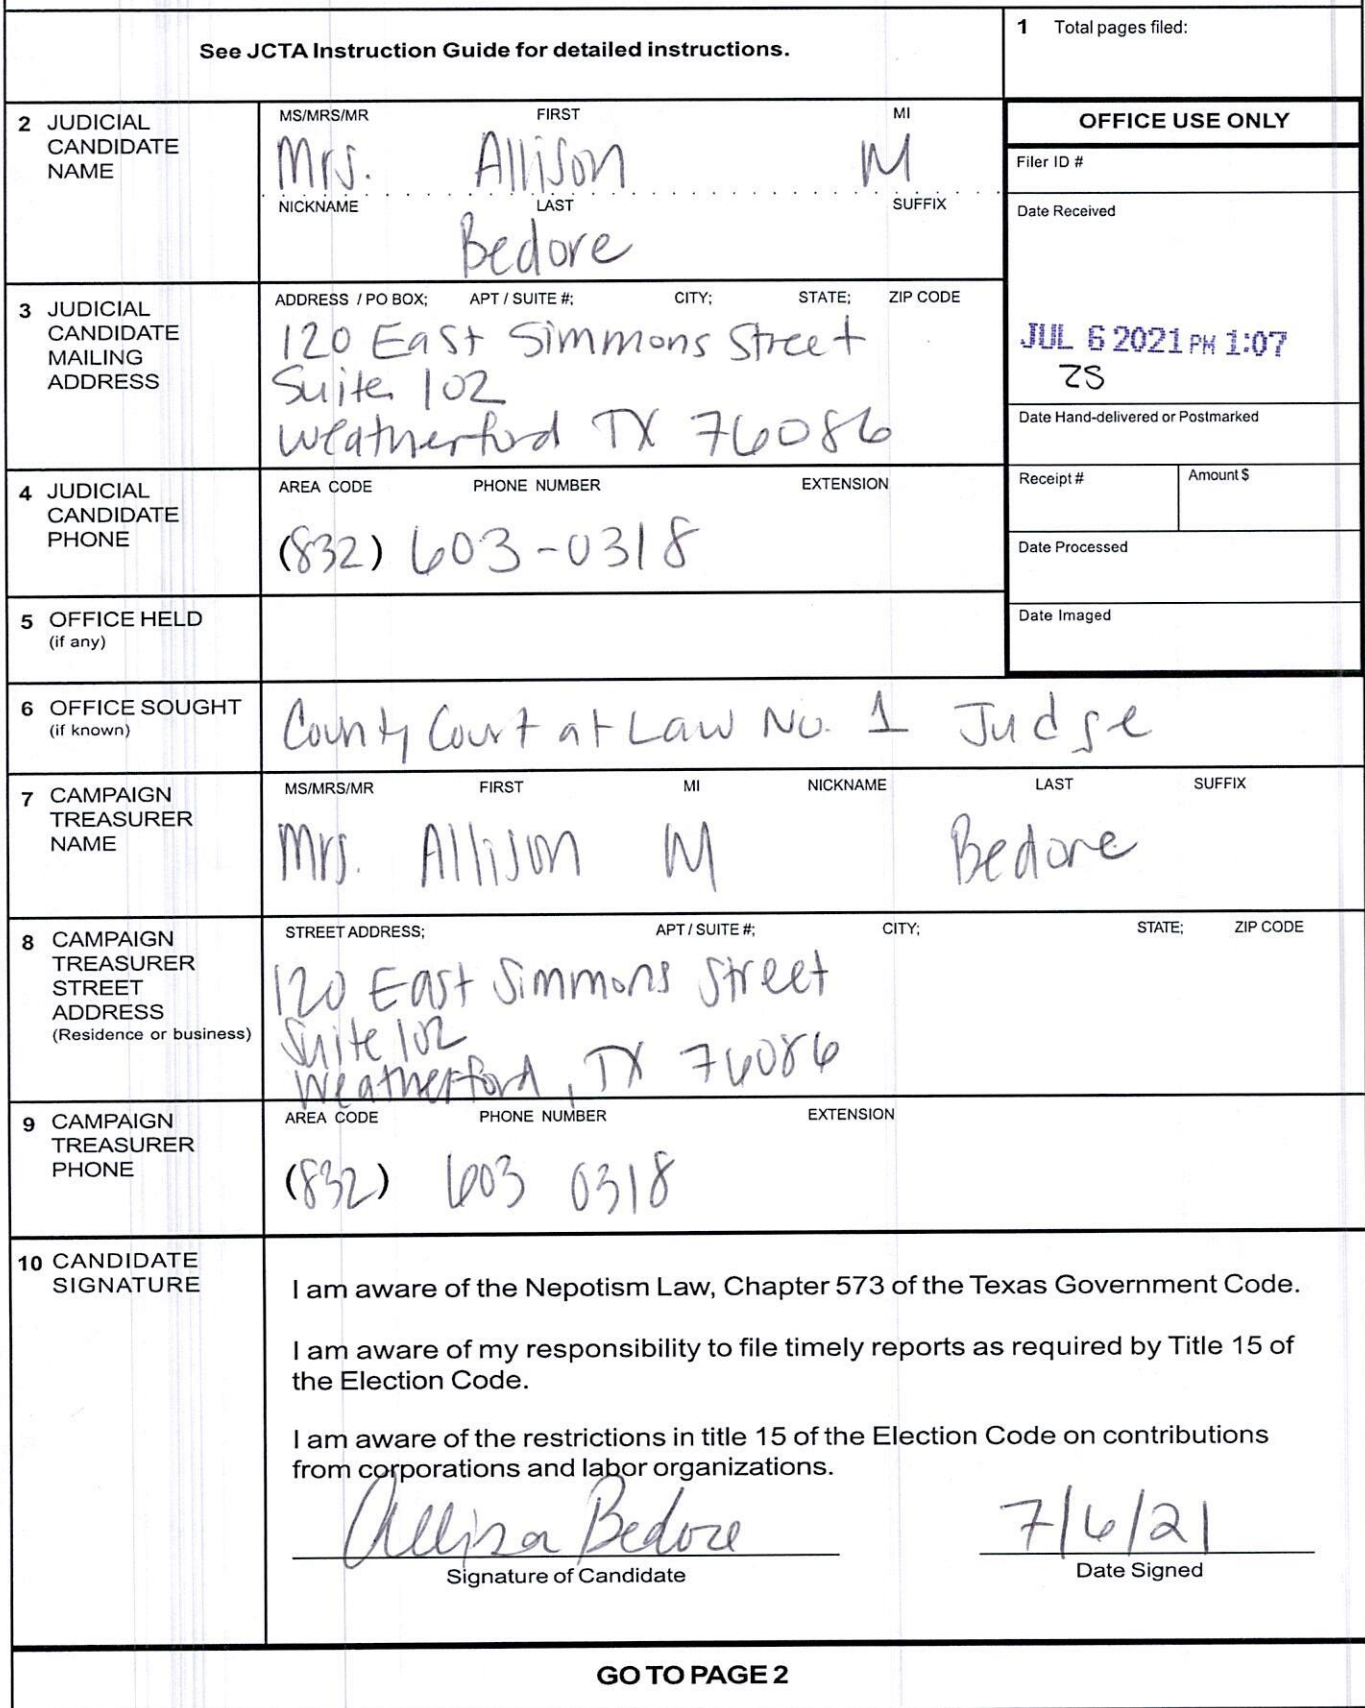 See JCTA Instruction Guide for detailed instructions.
1 Total pages filed:
2 JUDICIAL CANDIDATE NAME
MS/MRS/MR FIRST MI
Mrs. Allison M
NICKNAME LAST SUFFIX
Bedore
OFFICE USE ONLY
Filer ID #
Date Received
JUL 6 2021 PM 1:07
ZS
Date Hand-delivered or Postmarked
Receipt # Amount $
Date Processed
Date Imaged
3 JUDICIAL CANDIDATE MAILING ADDRESS
ADDRESS / PO BOX; APT / SUITE #; CITY; STATE; ZIP CODE
120 East Simmons Street
Suite 102
Weatherford TX 76086
4 JUDICIAL CANDIDATE PHONE
AREA CODE PHONE NUMBER EXTENSION
(832) 603-0318
5 OFFICE HELD
(if any)
6 OFFICE SOUGHT
(if known)
County Court at Law No. 1 Judge
7 CAMPAIGN TREASURER NAME
MS/MRS/MR FIRST MI NICKNAME LAST SUFFIX
Mrs. Allison M Bedore
8 CAMPAIGN TREASURER STREET ADDRESS
(Residence or business)
STREET ADDRESS; APT / SUITE #; CITY; STATE; ZIP CODE
120 East Simmons Street
Suite 102
Weatherford, TX 76086
9 CAMPAIGN TREASURER PHONE
AREA CODE PHONE NUMBER EXTENSION
(832) 603 0318
10 CANDIDATE SIGNATURE
I am aware of the Nepotism Law, Chapter 573 of the Texas Government Code.
I am aware of my responsibility to file timely reports as required by Title 15 of
the Election Code.
I am aware of the restrictions in title 15 of the Election Code on contributions
from corporations and labor organizations.
Allison Bedore 7/6/21
Signature of Candidate Date Signed
GO TO PAGE 2